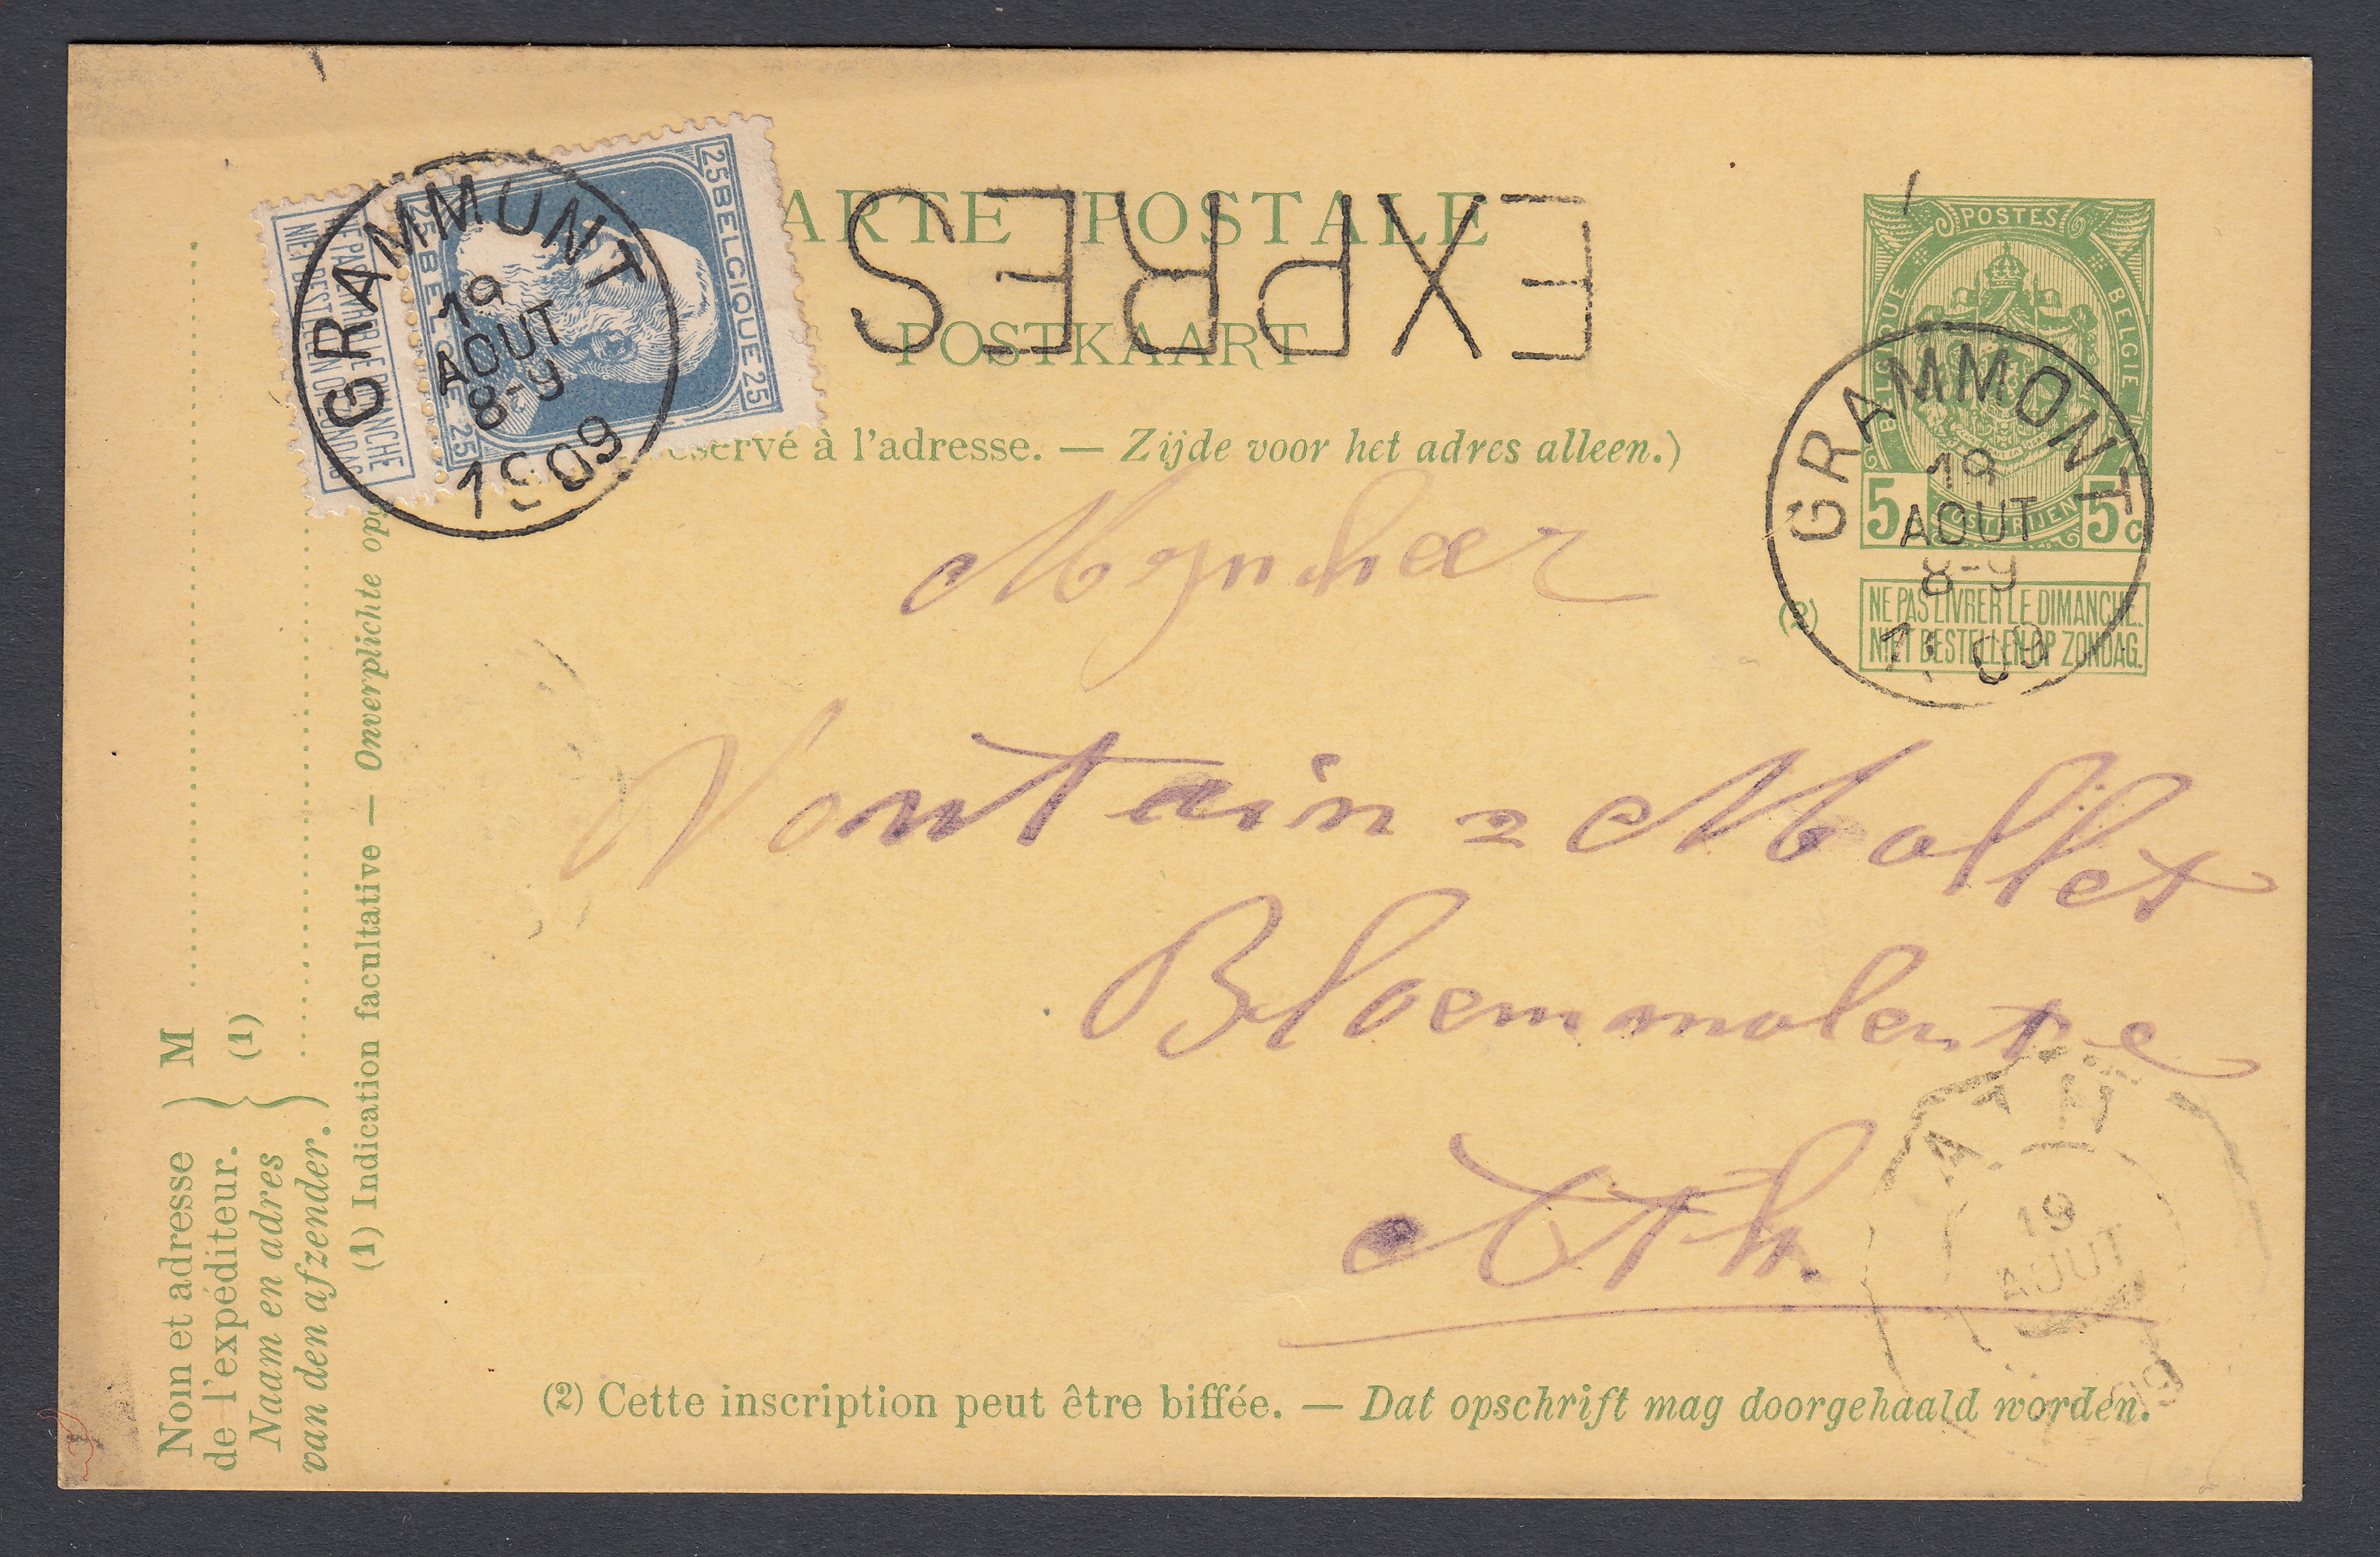 CARTE POSTALE
EXPRES
POSTKAART
réservé à l'adresse. — Zijde voor het adres alleen.)
25 BELGIQUE 25
25 BELGIË 25
NE PAS LIVRER LE DIMANCHE
NIET BESTELLEN OP ZONDAG
GRAMMONT
19
AOUT
8-9
1909
POSTES
BELGIQUE
BELGIË
POSTERIJEN
5 5c
GRAMMONT
19
AOUT
8-9
1909
(2)
NE PAS LIVRER LE DIMANCHE.
NIET BESTELLEN OP ZONDAG.
Mynheer
Vontain = Mollet
Bloemmolen
Ath
ATH
19
AOUT
09
(2) Cette inscription peut être biffée. — Dat opschrift mag doorgehaald worden.
Nom et adresse
de l'expéditeur.
Naam en adres
van den afzender.
M
(1)
(1) Indication facultative — Onverplichte opg